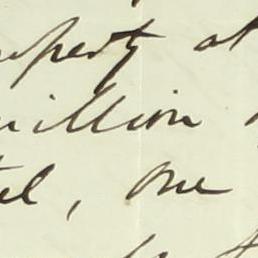 property at
million
tel, one